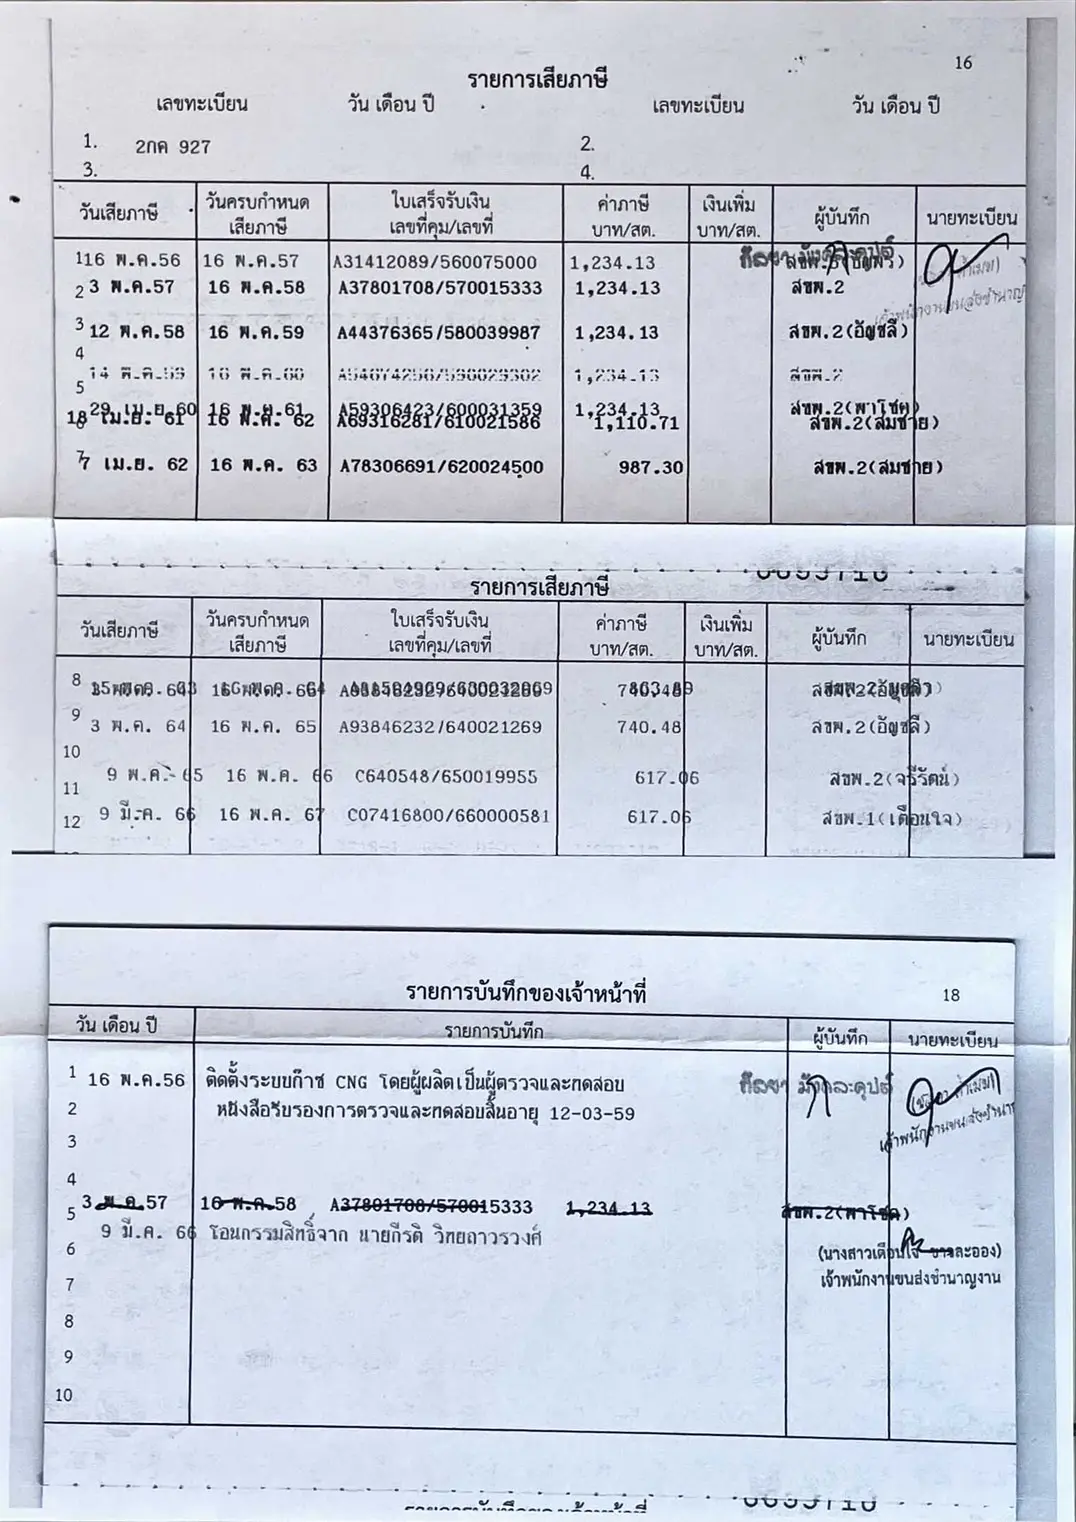 16
รายการเสียภาษี
เลขทะเบียน วัน เดือน ปี เลขทะเบียน วัน เดือน ปี
1. 2กค 927 2.
3. 4.
วันเสียภาษี วันครบกำหนดเสียภาษี ใบเสร็จรับเงิน เลขที่คุม/เลขที่ ค่าภาษี บาท/สต. เงินเพิ่ม บาท/สต. ผู้บันทึก นายทะเบียน
1 16 พ.ค.56 16 พ.ค.57 A31412089/560075000 1,234.13
2 3 พ.ค.57 16 พ.ค.58 A37801708/570015333 1,234.13 สขพ.2
3 12 พ.ค.58 16 พ.ค.59 A44376365/580039987 1,234.13 สขพ.2(อัญชลี)
4 14 พ.ค.59 16 พ.ค.60 1,234.13 สขพ.2
5 29 เม.ย.60 16 พ.ค.61 A59306423/600031359 1,234.13 สขพ.2(พาโชค)
6 18 เม.ย. 61 16 พ.ค. 62 A69316281/610021586 1,110.71 สขพ.2(สมชาย)
7 7 เม.ย. 62 16 พ.ค. 63 A78306691/620024500 987.30 สขพ.2(สมชาย)
รายการเสียภาษี
วันเสียภาษี วันครบกำหนดเสียภาษี ใบเสร็จรับเงิน เลขที่คุม/เลขที่ ค่าภาษี บาท/สต. เงินเพิ่ม บาท/สต. ผู้บันทึก นายทะเบียน
8
9 3 พ.ค. 64 16 พ.ค. 65 A93846232/640021269 740.48 สขพ.2(อัญชลี)
10
11 9 พ.ค. 65 16 พ.ค. 66 C640548/650019955 617.06 สขพ.2(จรีรัตน์)
12 9 มี.ค. 66 16 พ.ค. 67 C07416800/660000581 617.06 สขพ.1(เดือนใจ)
18
รายการบันทึกของเจ้าหน้าที่
วัน เดือน ปี รายการบันทึก ผู้บันทึก นายทะเบียน
1 16 พ.ค.56 ติดตั้งระบบก๊าซ CNG โดยผู้ผลิตเป็นผู้ตรวจและทดสอบ
2 หนังสือรับรองการตรวจและทดสอบสิ้นอายุ 12-03-59
3
4
5 3 พ.ค.57 16 พ.ค.58 A37801708/570015333 1,234.13 สขพ.2(พาโชค)
9 มี.ค. 66 โอนกรรมสิทธิ์จาก นายกีรติ วิทยถาวรวงศ์
6 (นางสาวเดือนใจ ขาวละออง)
7 เจ้าพนักงานขนส่งชำนาญงาน
8
9
10